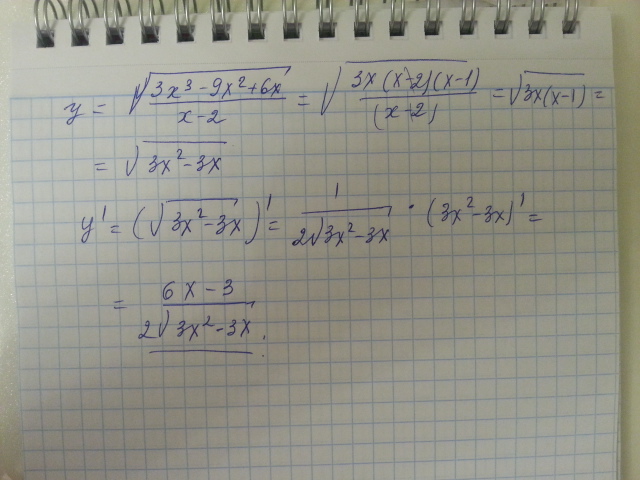 y = √((3x³ - 9x² + 6x)/(x - 2)) = √((3x(x-2)(x-1))/((x-2))) = √(3x(x-1)) =
= √(3x² - 3x)
y' = (√(3x² - 3x))' = 1/(2√(3x² - 3x)) · (3x² - 3x)' =
= (6x - 3)/(2√(3x² - 3x)).